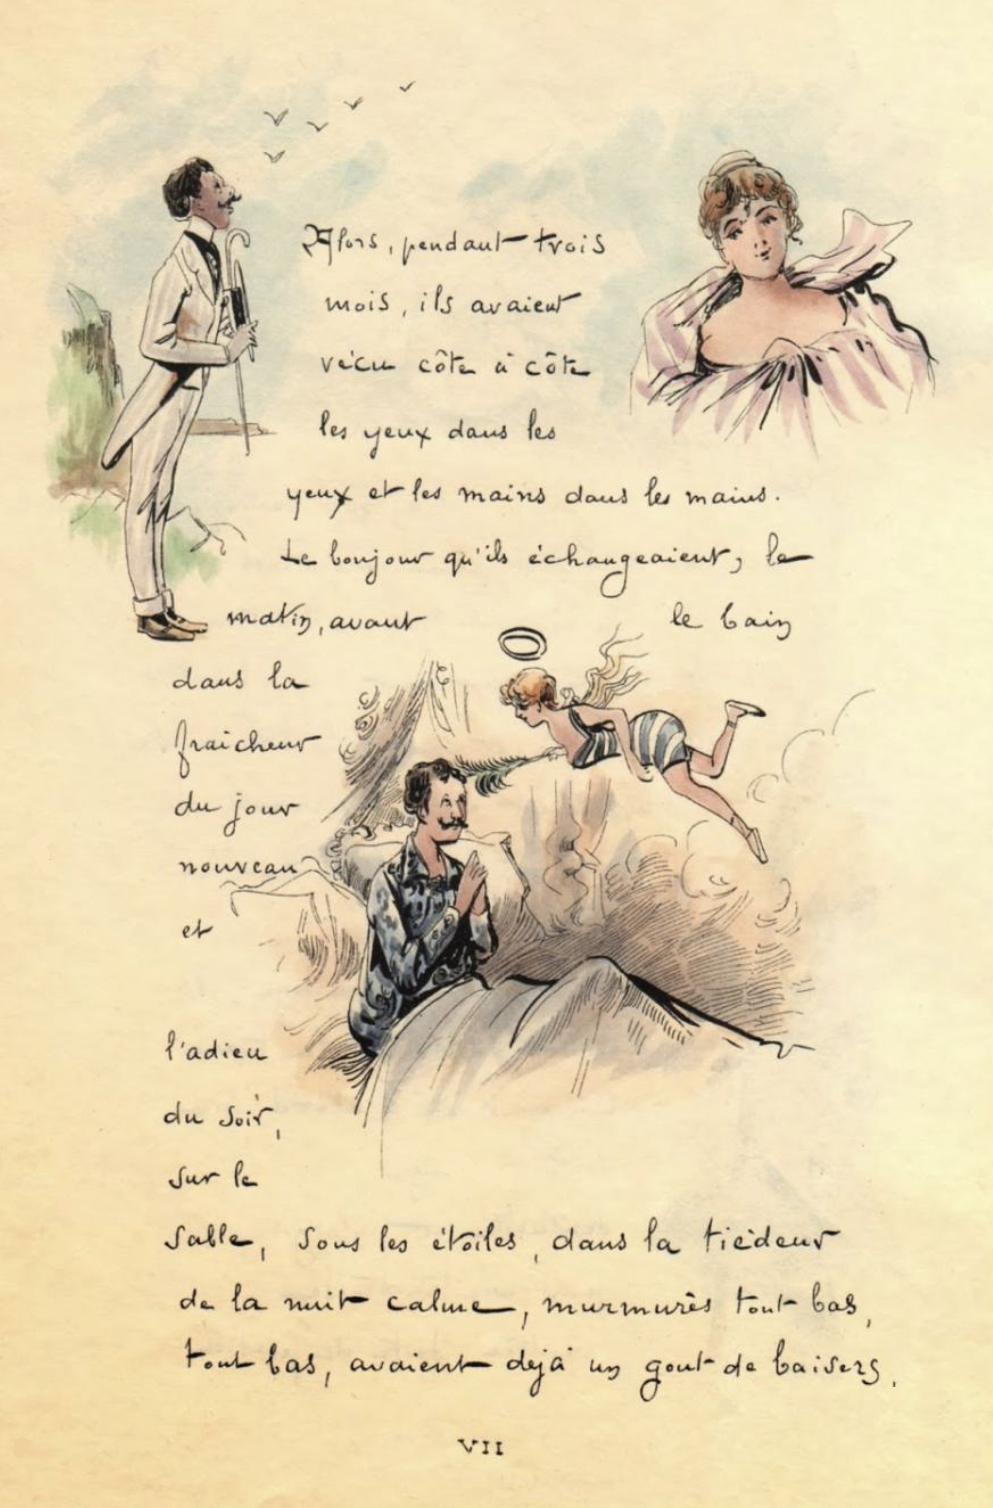 Alors, pendant trois
mois, ils avaient
vécu côte à côte
les yeux dans les
yeux et les mains dans les mains.
Le bonjour qu'ils échangeaient, le
matin, avant le bain
dans la
fraicheur
du jour
nouveau
et
l'adieu
du soir,
sur le
sable, sous les étoiles, dans la tiédeur
de la nuit calme, murmurés tout bas,
tout bas, avaient déjà un gout de baisers.
VII